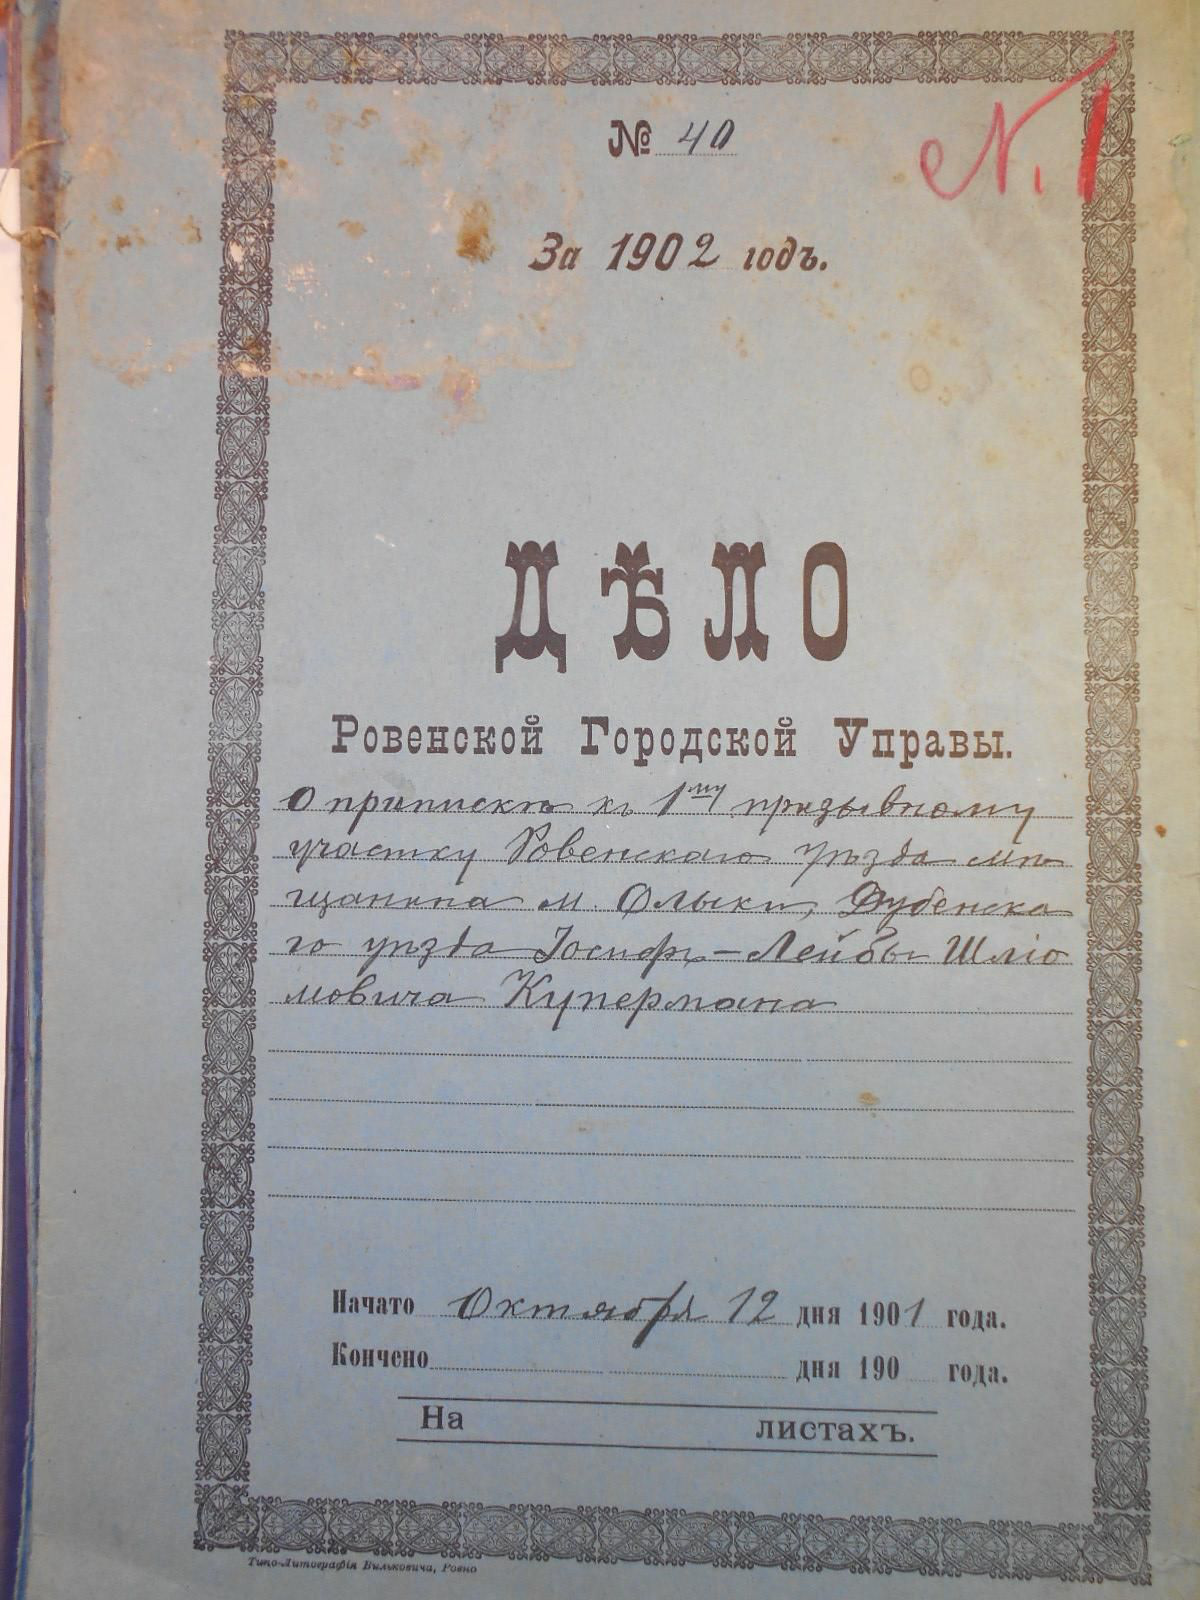 № 40
N. 1
За 1902 годъ.
ДѢЛО
Ровенской Городской Управы.
О припискѣ къ 1му призывному
участку Ровенскаго уѣзда мѣ
щанина м. Олыки, Дубенска
го уѣзда Іосифъ-Лейбы Шліо
мовича Купермана
Начато Октября 12 дня 1901 года.
Кончено дня 190 года.
На листахъ.
Типо-Литографія Вильковича, Ровно